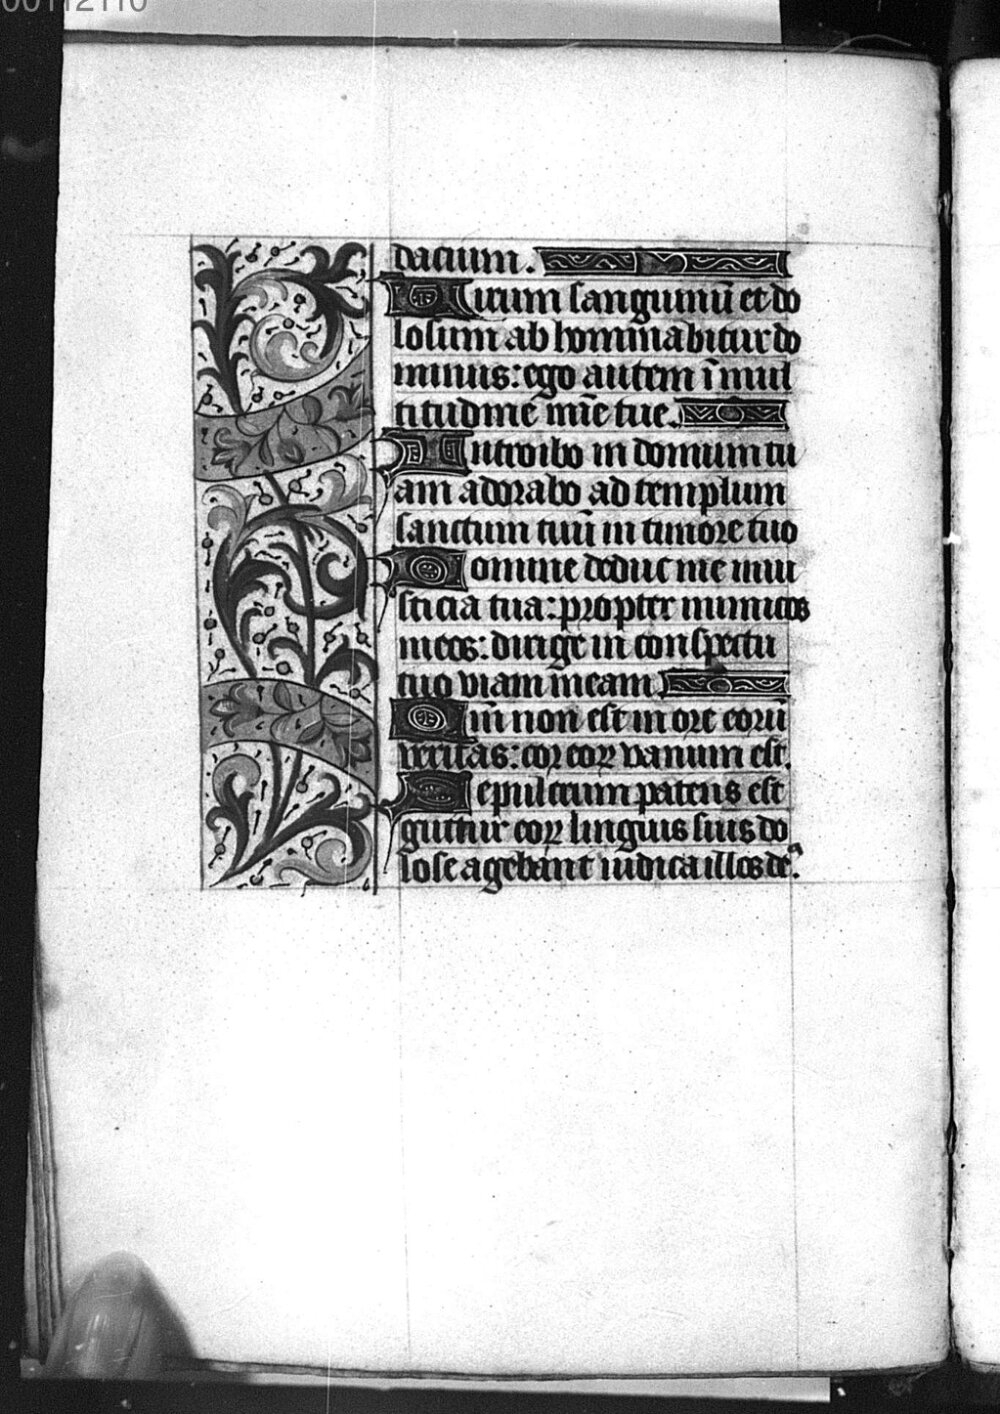 00112110
dacium.
Uirum sanguinū et do
losum abhominabitur do
minus: ego autem ī mul
titudine mīe tue.
Introibo in domum tu
am adorabo ad templum
sanctum tuū in timore tuo
Domine deduc me in iu
sticia tua: propter inimicos
meos: dirige in conspectu
tuo viam meam
Qm̄ non est in ore eorū
veritas: cor eoꝝ vanum est.
Sepulcrum patens est
guttur eoꝝ linguis suis do
lose agebant iudica illos de